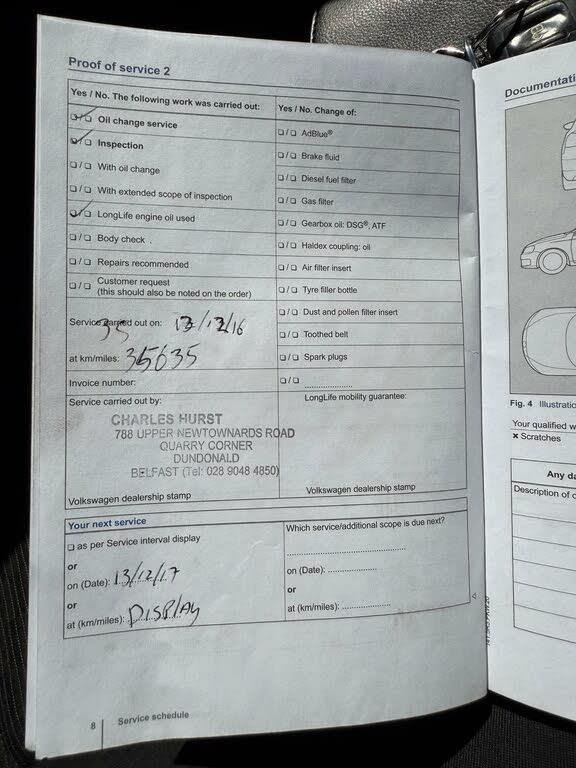 Proof of service 2
Yes / No. The following work was carried out:
☑/☐ Oil change service
☑/☐ Inspection
☐/☐ With oil change
☐/☐ With extended scope of inspection
☑/☐ LongLife engine oil used
☐/☐ Body check .
☐/☐ Repairs recommended
☐/☐ Customer request
(this should also be noted on the order)
Service carried out on: 13/12/16
35
at km/miles: 35635
Invoice number:
Service carried out by:
CHARLES HURST
788 UPPER NEWTOWNARDS ROAD
QUARRY CORNER
DUNDONALD
BELFAST (Tel: 028 9048 4850)
Volkswagen dealership stamp
Yes / No. Change of:
☐/☐ AdBlue®
☐/☐ Brake fluid
☐/☐ Diesel fuel filter
☐/☐ Gas filter
☐/☐ Gearbox oil: DSG®, ATF
☐/☐ Haldex coupling: oil
☐/☐ Air filter insert
☐/☐ Tyre filler bottle
☐/☐ Dust and pollen filter insert
☐/☐ Toothed belt
☐/☐ Spark plugs
☐/☐ ....................
LongLife mobility guarantee:
Volkswagen dealership stamp
Your next service
☐ as per Service interval display
or
on (Date): 13/12/17
or
at (km/miles): DISPLAY
Which service/additional scope is due next?
on (Date): ..................
or
at (km/miles): ..................
8 Service schedule
Documentati
Fig. 4 Illustratio
Your qualified w
× Scratches
Any da
Description of d